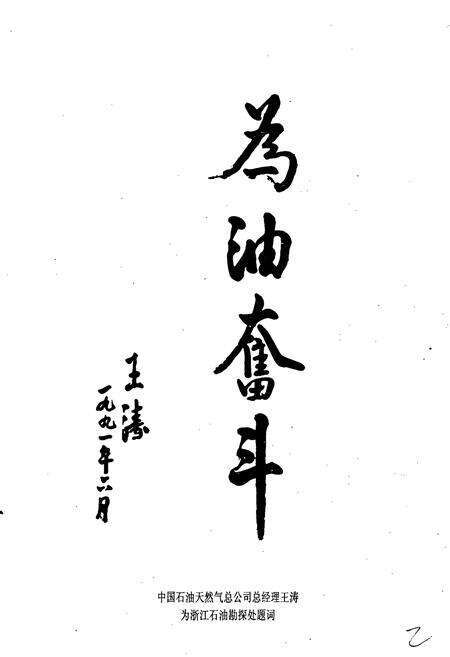 為油奮斗
王濤
一九九一年六月
中国石油天然气总公司总经理王涛
为浙江石油勘探处题词
乙